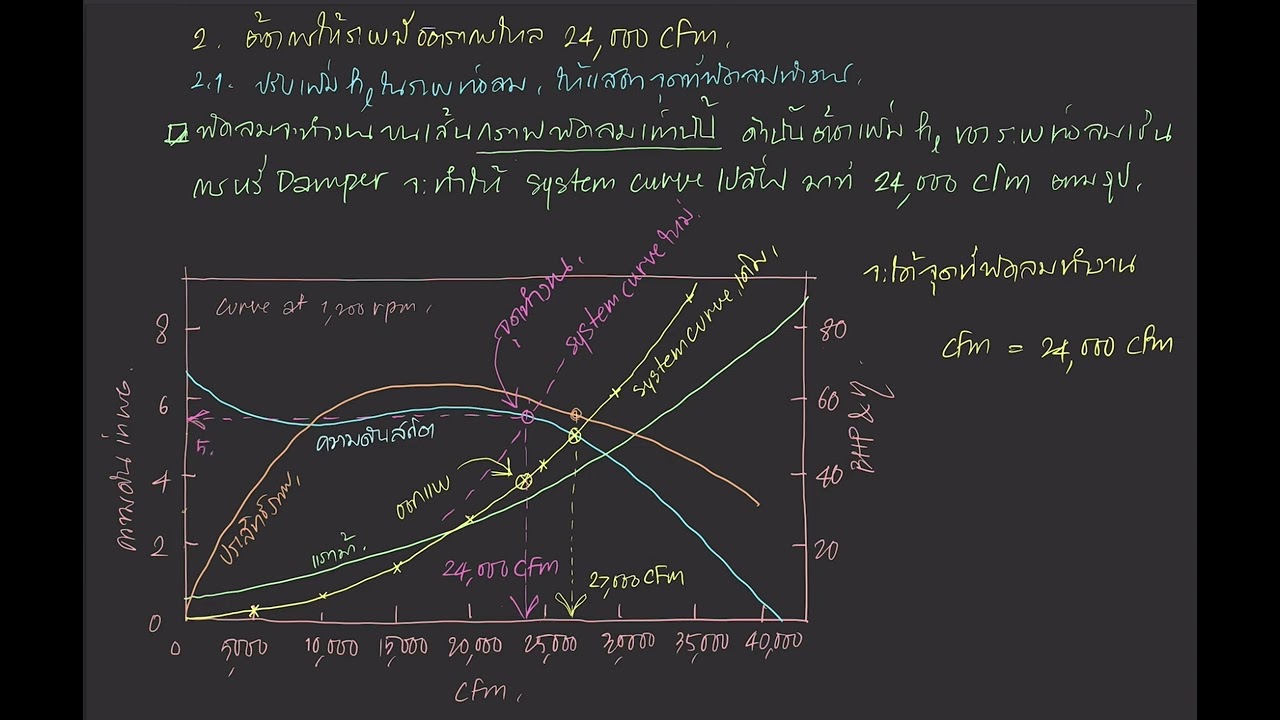 2. ต้องการให้ระบบมีอัตราการไหล 24,000 cfm.
2.1. ปรับเพิ่ม hℓ ในระบบท่อลม, ให้แสดงจุดที่พัดลมทำงาน.
พัดลมจะทำงานบนเส้นกราฟพัดลมเท่านั้น ดังนั้นต้องเพิ่ม hℓ ของระบบท่อลมเช่น
การหรี่ Damper จะทำให้ system curve ไปสไลด์ มาที่ 24,000 cfm ตามรูป.
จะได้จุดที่พัดลมทำงาน
cfm = 24,000 cfm
curve at 1,200 rpm.
จุดทำงาน.
system curve ใหม่.
system curve เดิม.
ความดัน inwg.
8
6
4
2
0
5.
ความดันสถิต
ประสิทธิภาพ.
แรงม้า.
ออกแบบ
24,000 cfm
27,000 cfm
80
60
40
20
BHP & η
0 5,000 10,000 15,000 20,000 25,000 30,000 35,000 40,000
cfm.